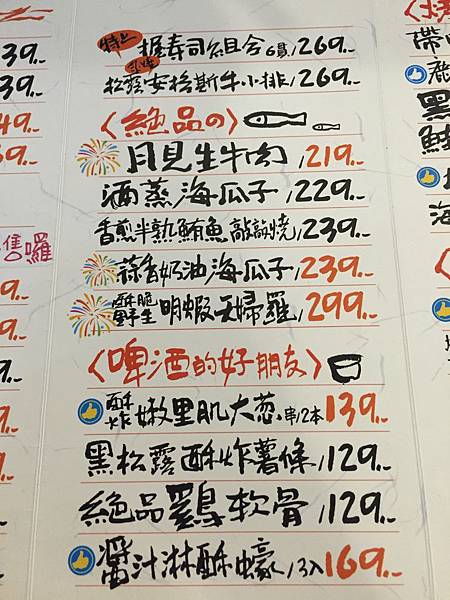 特上 握壽司組合 6貫/269.-
松露安格斯牛小排/269.-
<絕品の>
月見生牛肉/219.-
酒蒸海瓜子/229.-
香煎半熟鮪魚敲敲燒/239.-
蒜香奶油海瓜子/239.-
酥脆野生明蝦天婦羅/299.-
<啤酒的好朋友>
酥炸嫩里肌大葱 串/2本 139.-
黑松露酥炸薯條/129.-
絕品雞軟骨/129.-
醬汁淋酥蠔/3入 169.-
39.-
39.-
49.-
69.-
售囉
帶
黑
鮭
海